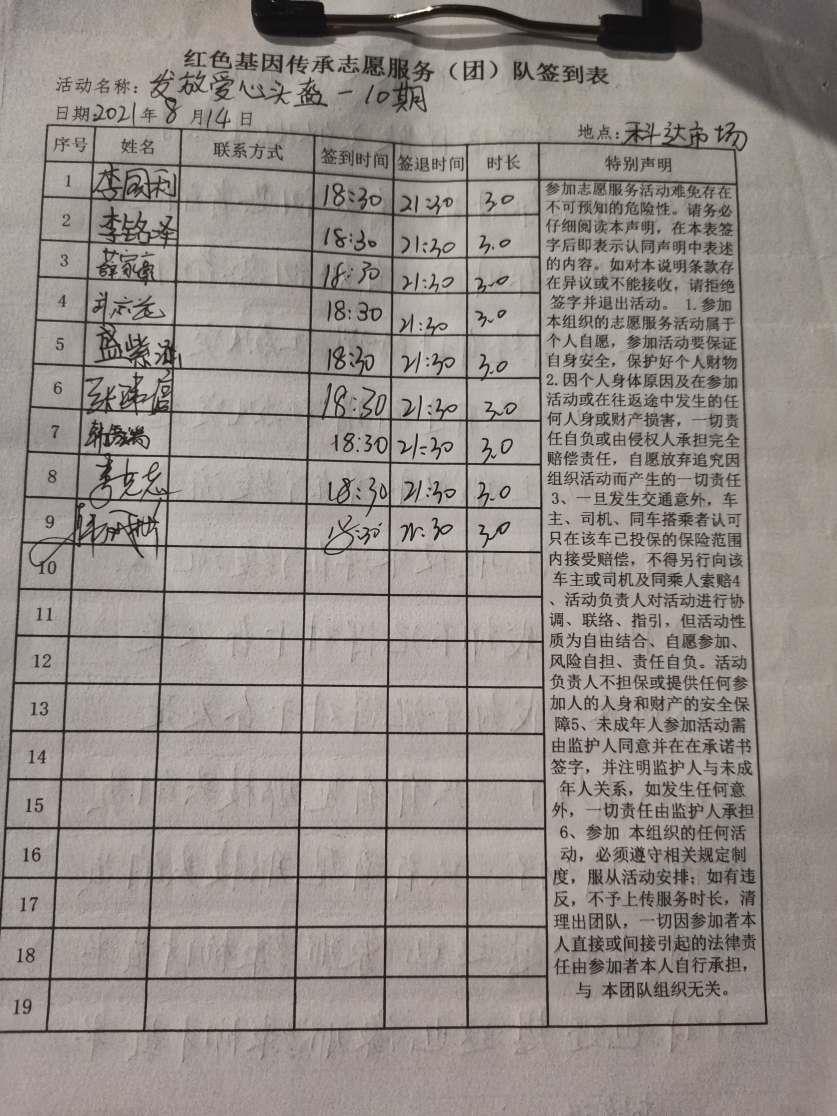 红色基因传承志愿服务（团）队签到表
活动名称：发放爱心头盔－10期
日期：2021年8月14日
地点：科达市场
序号 姓名 联系方式 签到时间 签退时间 时长 特别声明
1 李国利 18:30 21:30 3.0
2 李铭泽 18:30 21:30 3.0
3 薛家 18:30 21:30 3.0
4 18:30 21:30 3.0
5 蓝紫涵 18:30 21:30 3.0
6 18:30 21:30 3.0
7 18:30 21:30 3.0
8 李克志 18:30 21:30 3.0
9 18:30 21:30 3.0
10
11
12
13
14
15
16
17
18
19
参加志愿服务活动难免存在
不可预知的危险性。请务必
仔细阅读本声明，在本表签
字后即表示认同声明中表述
的内容。如对本说明条款存
在异议或不能接收，请拒绝
签字并退出活动。 1.参加
本组织的志愿服务活动属于
个人自愿，参加活动要保证
自身安全，保护好个人财物
2.因个人身体原因及在参加
活动或在往返途中发生的任
何人身或财产损害，一切责
任自负或由侵权人承担完全
赔偿责任，自愿放弃追究因
组织活动而产生的一切责任
3、一旦发生交通意外，车
主、司机、同车搭乘者认可
只在该车已投保的保险范围
内接受赔偿，不得另行向该
车主或司机及同乘人索赔4
、活动负责人对活动进行协
调、联络、指引，但活动性
质为自由结合、自愿参加、
风险自担、责任自负。活动
负责人不担保或提供任何参
加人的人身和财产的安全保
障5、未成年人参加活动需
由监护人同意并在在承诺书
签字，并注明监护人与未成
年人关系，如发生任何意
外，一切责任由监护人承担
6、参加 本组织的任何活
动，必须遵守相关规定制
度，服从活动安排；如有违
反，不予上传服务时长，清
理出团队，一切因参加者本
人直接或间接引起的法律责
任由参加者本人自行承担，
与 本团队组织无关。